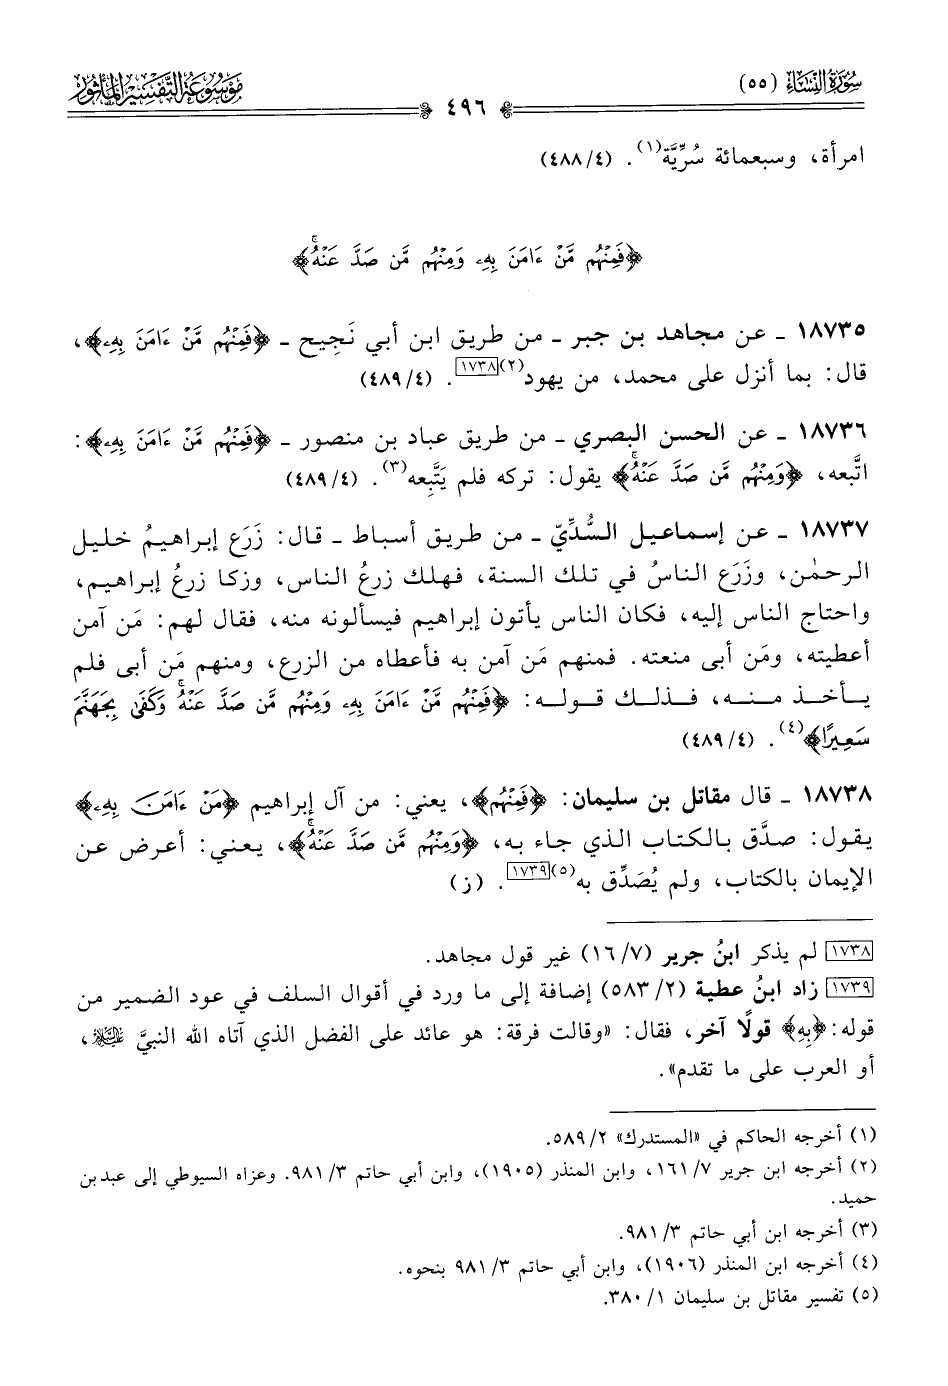 سُورَةُ النِّسَاءِ (٥٥)
٤٩٦
مَوْسُوعَةُ التَّفْسِيرِ المَأْثُور
امرأة، وسبعمائة سُرِّيَّة(١). (٤/ ٤٨٨)
﴿فَمِنْهُم مَّنْ ءَامَنَ بِهِۦ وَمِنْهُم مَّن صَدَّ عَنْهُۚ﴾
١٨٧٣٥ ـ عن مجاهد بن جبر ـ من طريق ابن أبي نَجِيح ـ ﴿فَمِنْهُم مَّنْ ءَامَنَ بِهِۦ﴾،
قال: بما أنزل على محمد، من يهود(٢)[١٧٣٨]. (٤/ ٤٨٩)
١٨٧٣٦ ـ عن الحسن البصري ـ من طريق عباد بن منصور ـ ﴿فَمِنْهُم مَّنْ ءَامَنَ بِهِۦ﴾:
اتَّبعه، ﴿وَمِنْهُم مَّن صَدَّ عَنْهُۚ﴾ يقول: تركه فلم يَتَّبِعه(٣). (٤/ ٤٨٩)
١٨٧٣٧ ـ عن إسماعيل السُّدِّيّ ـ من طريق أسباط ـ قال: زَرَع إبراهيمُ خليل
الرحمٰن، وزَرَع الناسُ في تلك السنة، فهلك زرعُ الناس، وزكا زرعُ إبراهيم،
واحتاج الناس إليه، فكان الناس يأتون إبراهيم فيسألونه منه، فقال لهم: مَن آمن
أعطيته، ومَن أبى منعته. فمنهم مَن آمن به فأعطاه من الزرع، ومنهم مَن أبى فلم
يـأخـذ مـنـه، فـذلـك قـولـه: ﴿فَمِنْهُم مَّنْ ءَامَنَ بِهِۦ وَمِنْهُم مَّن صَدَّ عَنْهُۚ وَكَفَىٰ بِجَهَنَّمَ
سَعِيرًا﴾(٤). (٤/ ٤٨٩)
١٨٧٣٨ ـ قال مقاتل بن سليمان: ﴿فَمِنْهُم﴾، يعني: من آل إبراهيم ﴿مَنْ ءَامَنَ بِهِۦ﴾
يقول: صدَّق بالكتاب الذي جاء به، ﴿وَمِنْهُم مَّن صَدَّ عَنْهُۚ﴾، يعني: أعرض عن
الإيمان بالكتاب، ولم يُصَدِّق به(٥)[١٧٣٩]. (ز)
[١٧٣٨] لم يذكر ابنُ جرير (٧/ ١٦) غير قول مجاهد.
[١٧٣٩] زاد ابنُ عطية (٢/ ٥٨٣) إضافة إلى ما ورد في أقوال السلف في عود الضمير من
قوله: ﴿بِهِ﴾ قولًا آخر، فقال: «وقالت فرقة: هو عائد على الفضل الذي آتاه الله النبيَّ ﷺ،
أو العرب على ما تقدم».
(١) أخرجه الحاكم في «المستدرك» ٢/ ٥٨٩.
(٢) أخرجه ابن جرير ٧/ ١٦١، وابن المنذر (١٩٠٥)، وابن أبي حاتم ٣/ ٩٨١. وعزاه السيوطي إلى عبد بن
حميد.
(٣) أخرجه ابن أبي حاتم ٣/ ٩٨١.
(٤) أخرجه ابن المنذر (١٩٠٦)، وابن أبي حاتم ٣/ ٩٨١ بنحوه.
(٥) تفسير مقاتل بن سليمان ١/ ٣٨٠.